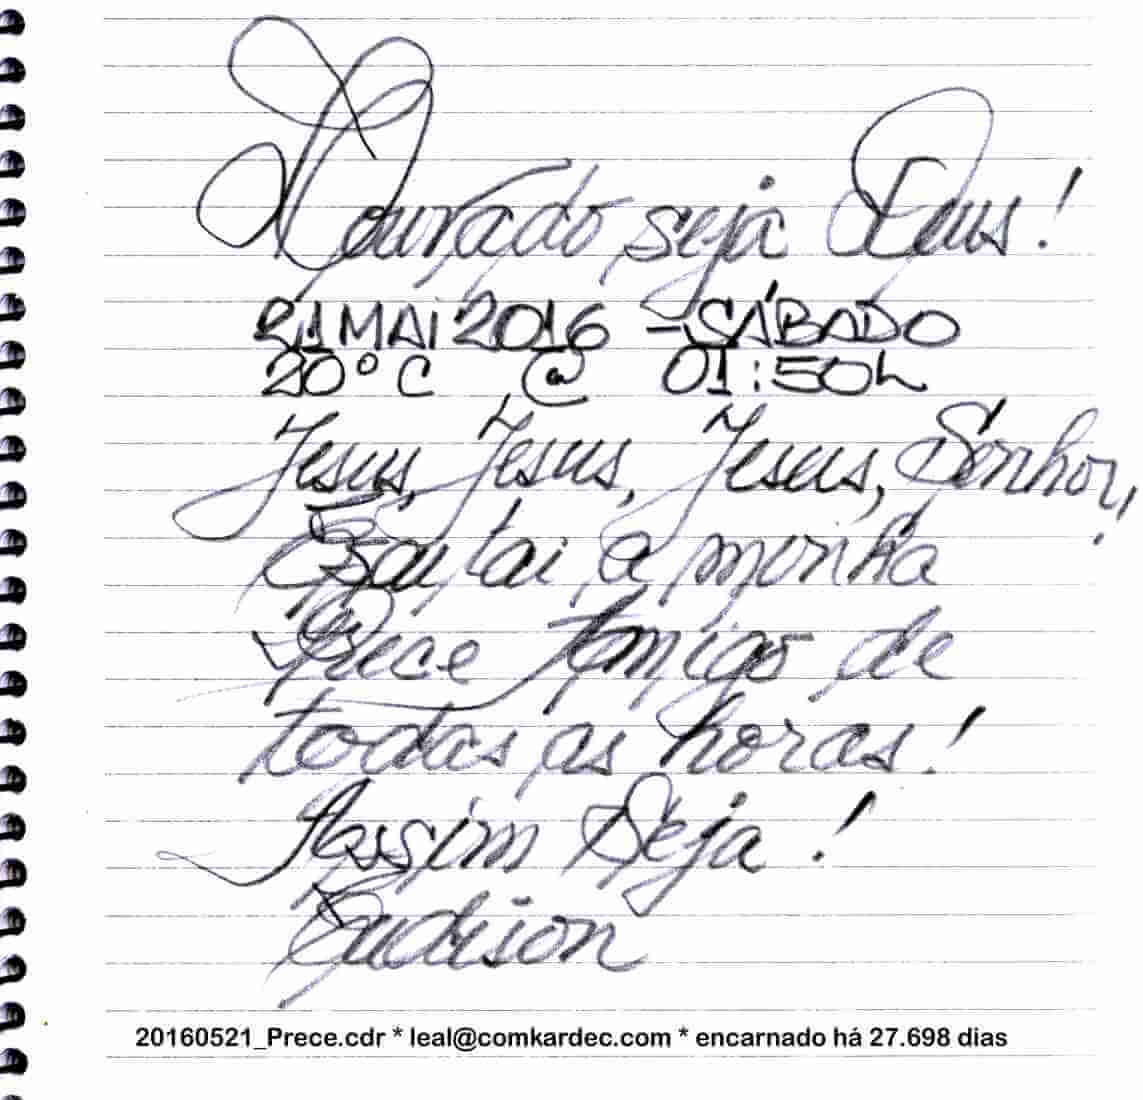 Louvado seja Deus!
21 MAI 2016 - SÁBADO
20°C @ 01:50h
Jesus, Jesus, Jesus, Senhor,
Escutai a minha
Prece Amigo de
todas as horas!
Assim Seja!
Eudison
20160521_Prece.cdr * leal@comkardec.com * encarnado há 27.698 dias